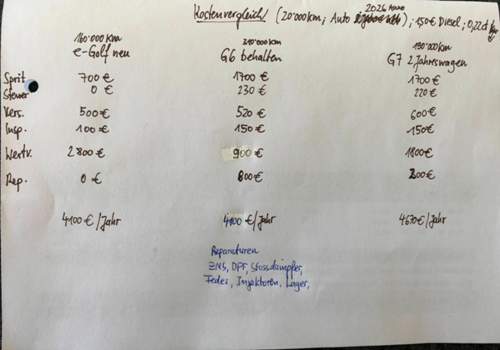 Kostenvergleich (20'000km, Auto 2026 , 1,50€ Diesel, 0,22ct
160'000km 210'000km 130'000km
e-Golf neu G6 behalten G7 2Jahreswagen
Sprit 700€ 1700€ 1700€
Steuer 0€ 230€ 220€
Vers. 500€ 520€ 600€
Insp. 100€ 150€ 150€
Wertv. 2800€ 900€ 1800€
Rep. 0€ 800€ 200€
4100€/Jahr 4100€/Jahr 4670€/Jahr
Reparaturen
ZMS, DPF, Stossdämpfer,
Feder, Injektoren, Lager,